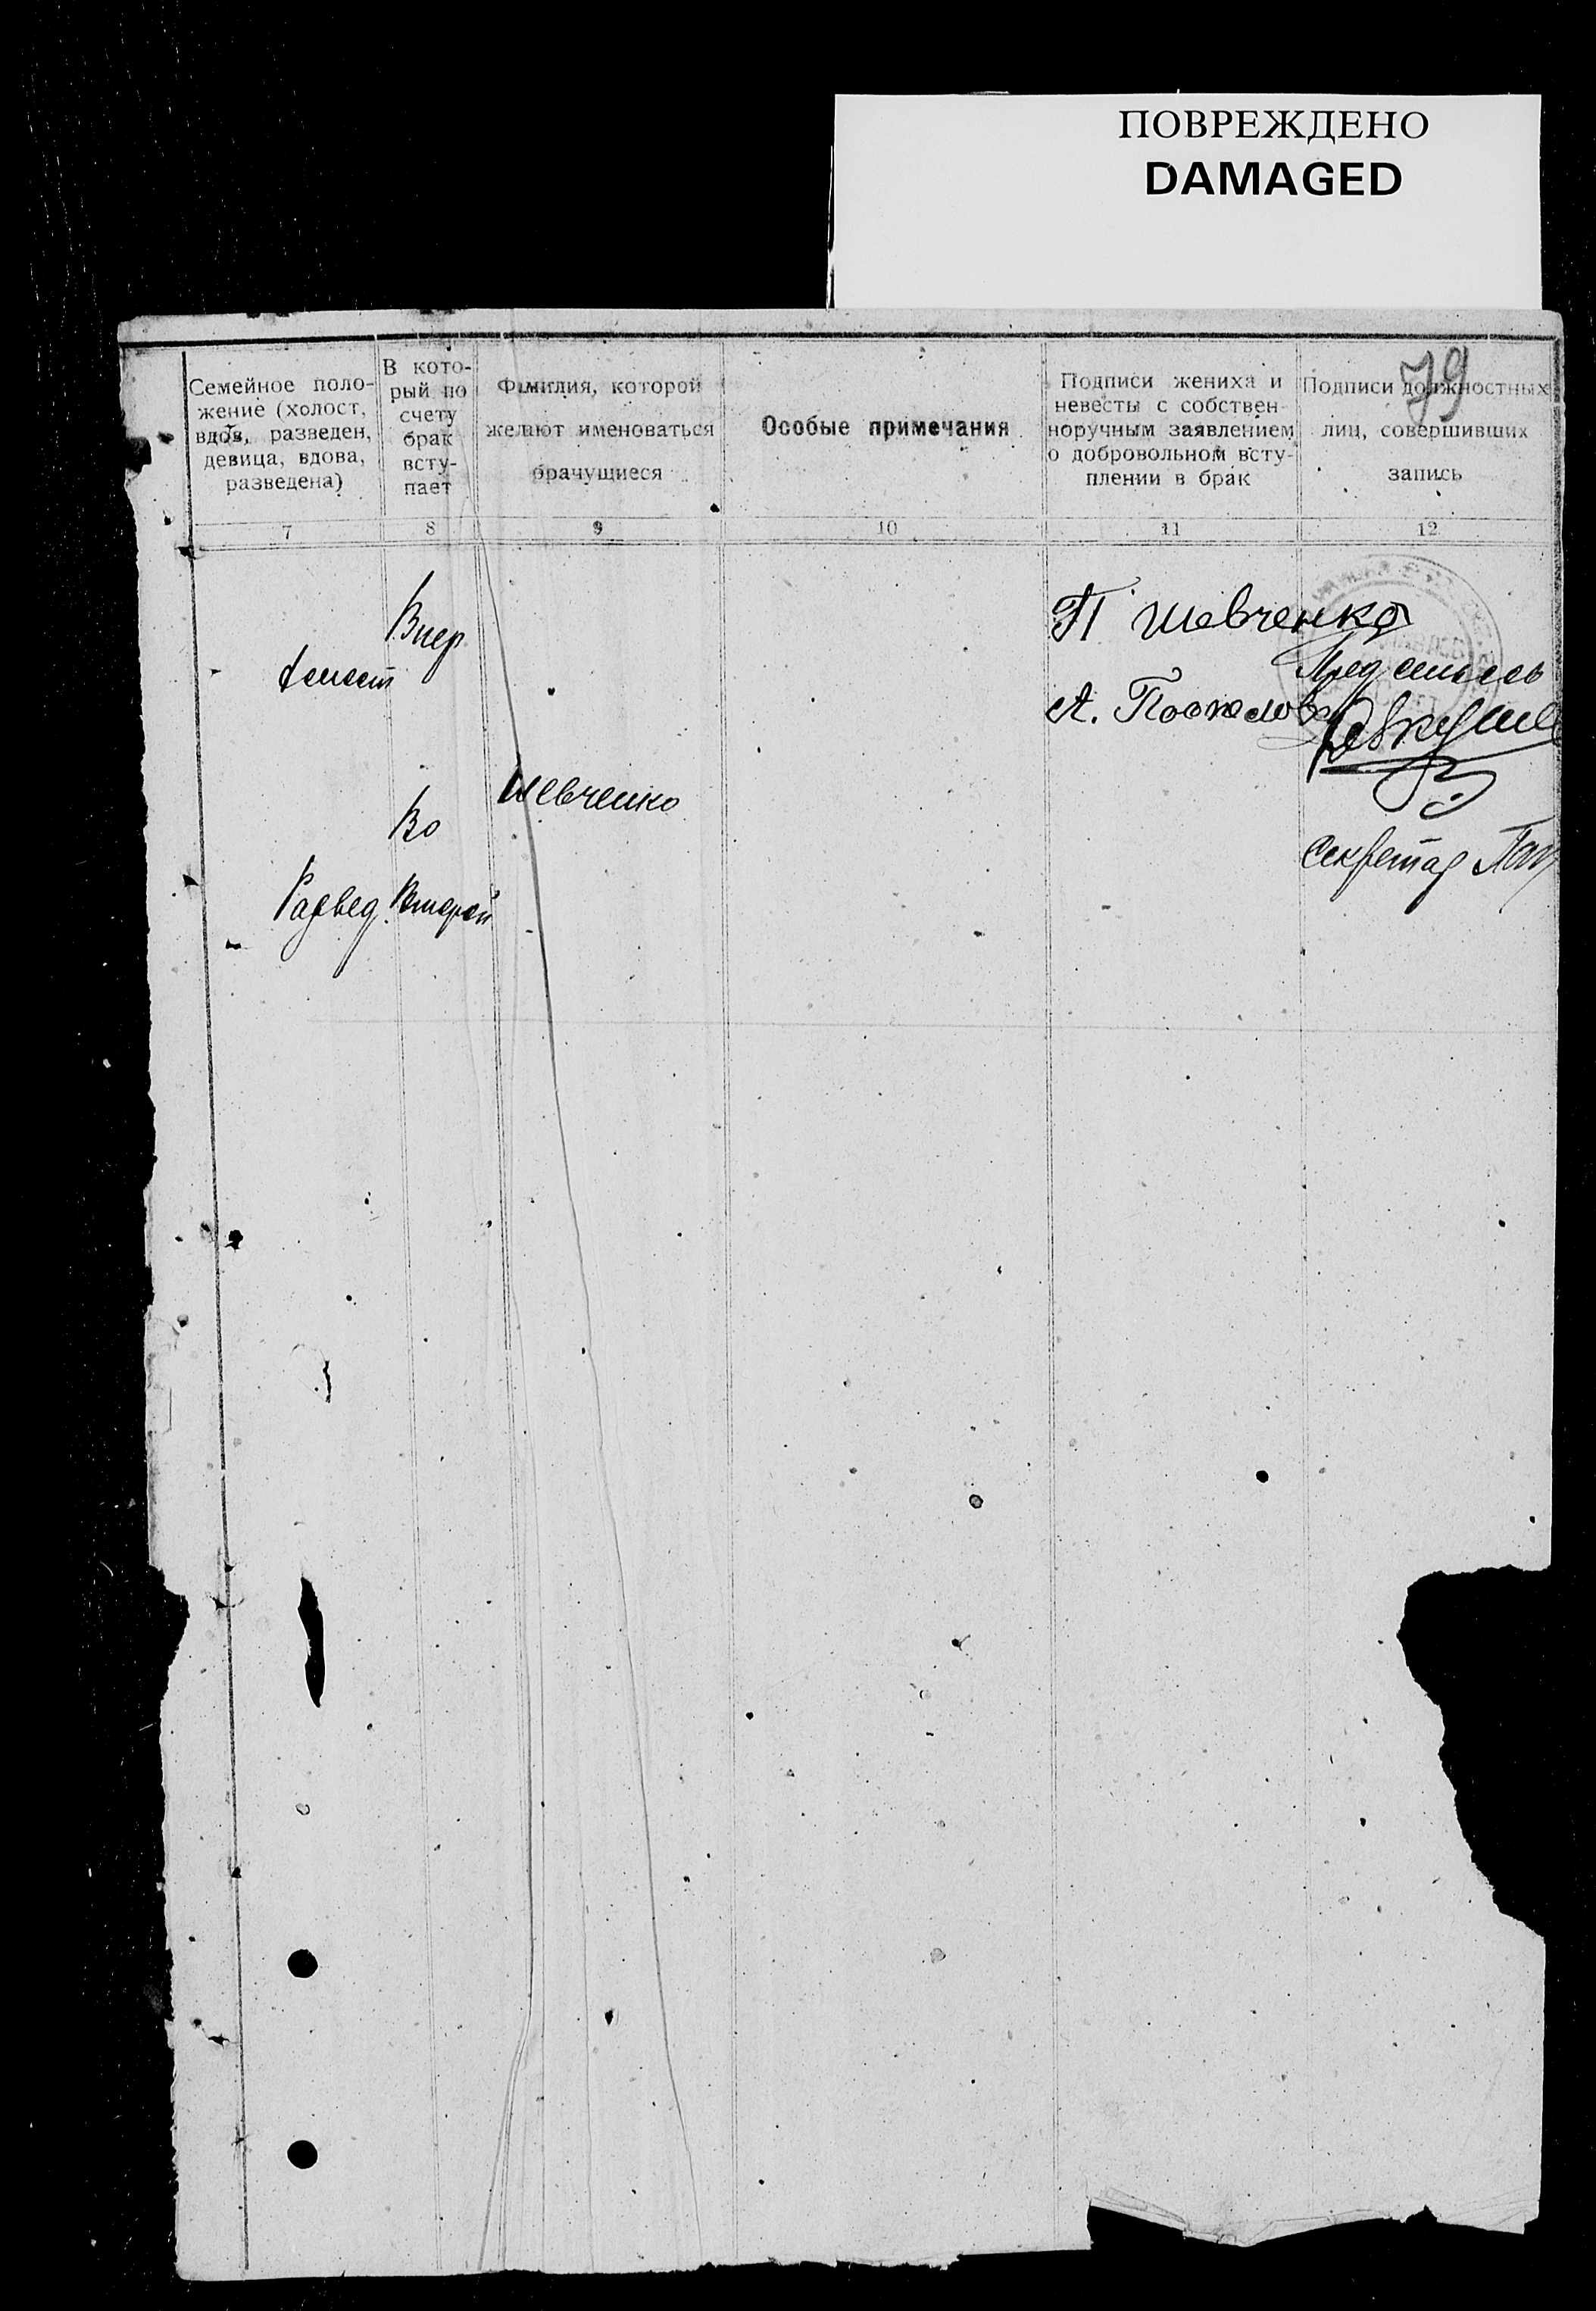 ПОВРЕЖДЕНО
DAMAGED
79
Семейное поло-
жение (холост,
вдов, разведен,
девица, вдова,
разведена)
В кото-
рый по
счету
брак
всту-
пает
Фамилия, которой
желают именоваться
брачущиеся
Особые примечания
Подписи жениха и
невесты с собствен-
норучным заявлением
о добровольном всту-
плении в брак
Подписи должностных
лиц, совершивших
запись
7 8 9 10 11 12
Впер
холост
П Шевченко
Пред
А.
Шевченко
Во
Развед. Второй
Секретар